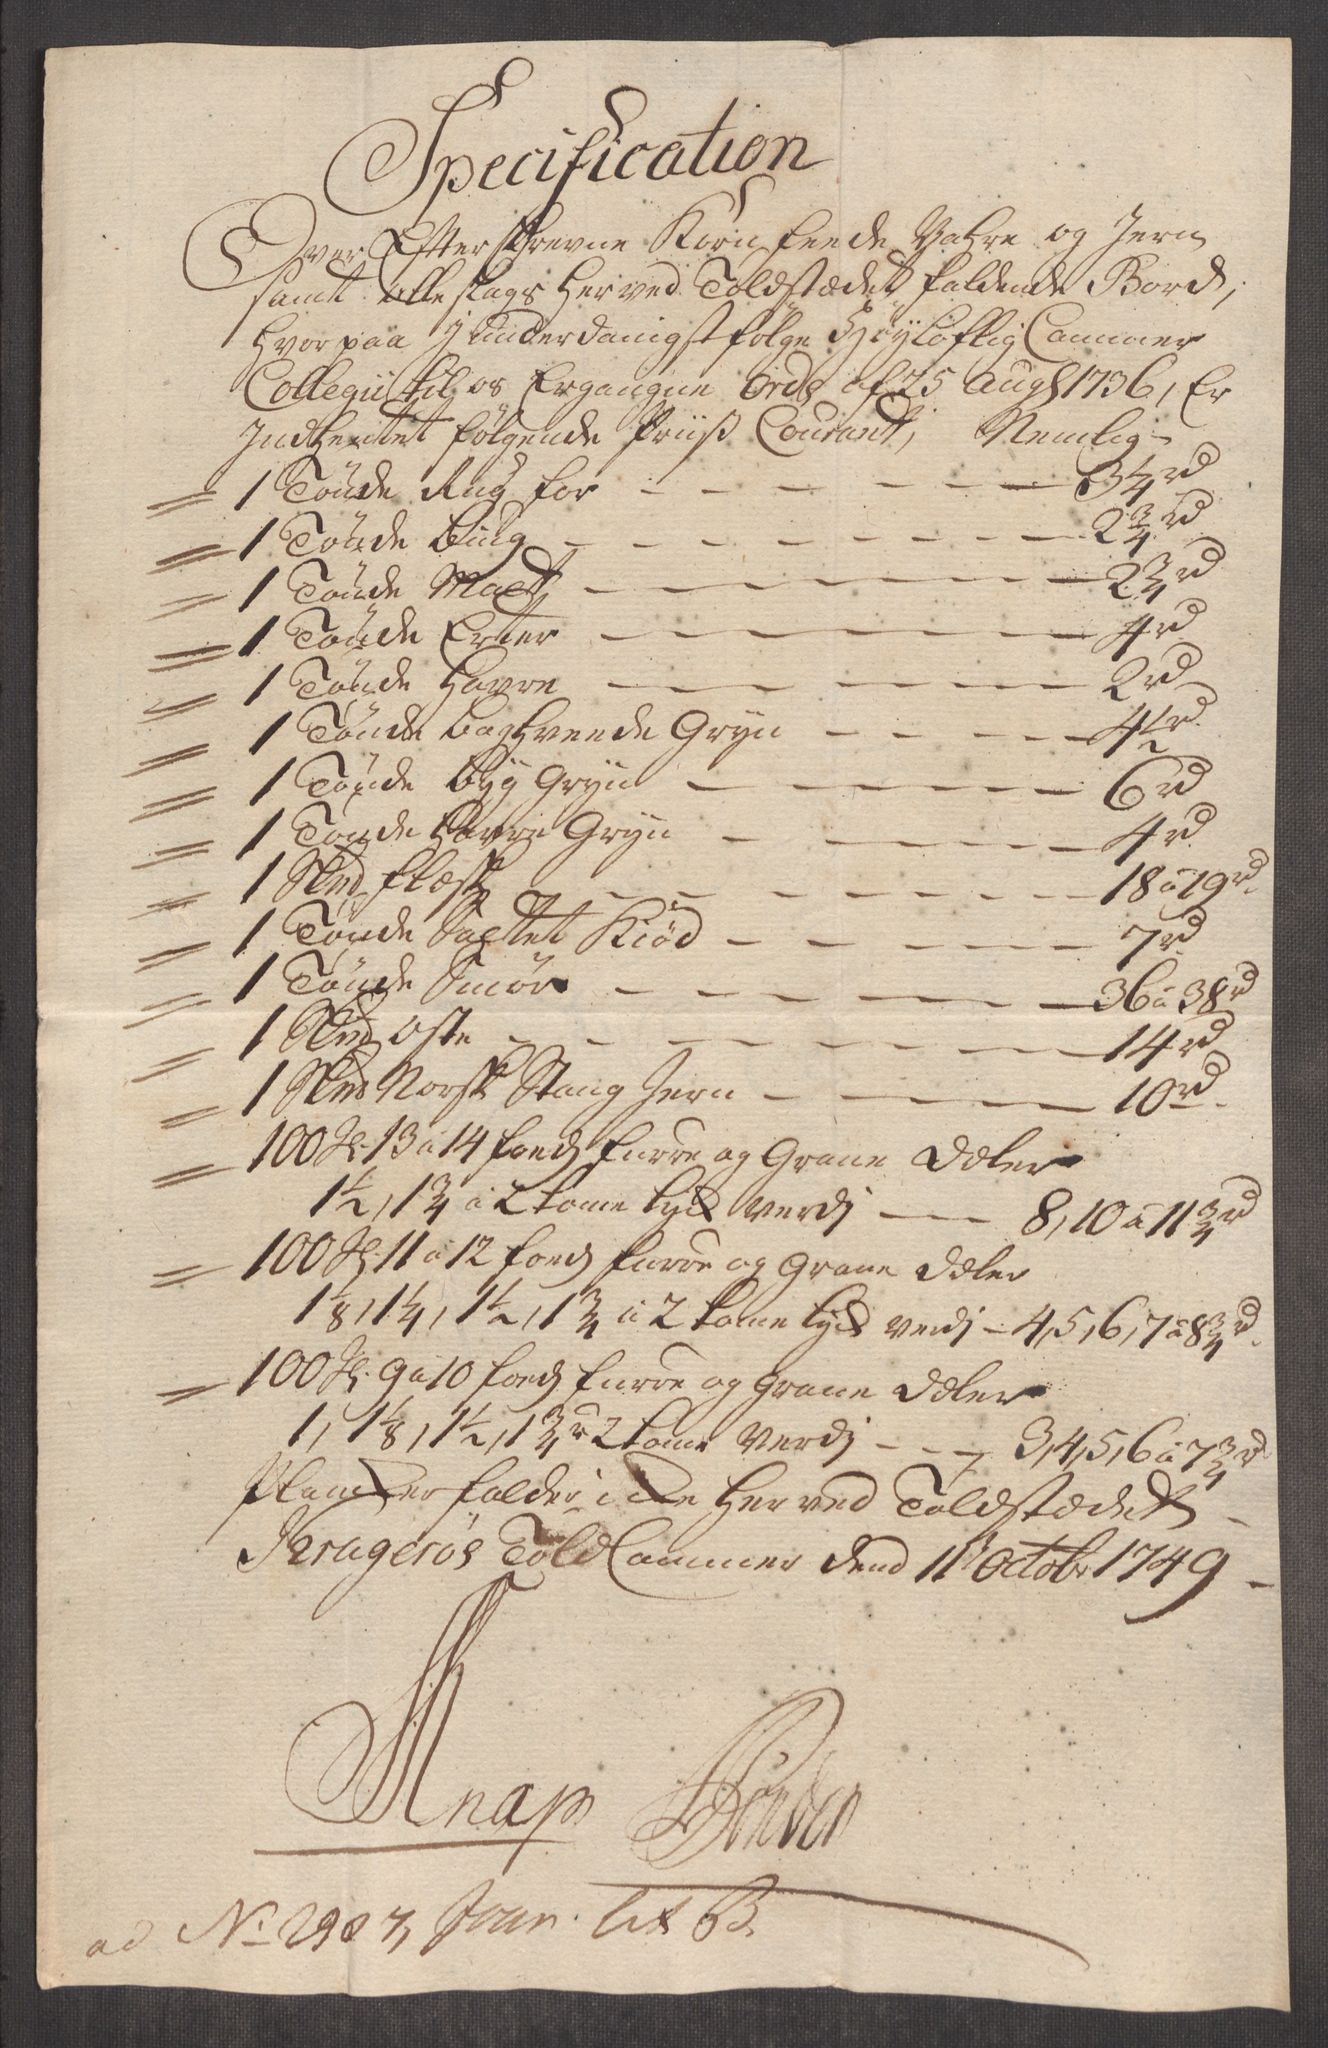 Specification
Over Efter skrevne Korn feede Vahre og Jern
samt alle slags her ved Toldstædet faldende Bord,
hvorpaa J underdanigst følge Høyløflig Cammer
Collegii til os Ergangne Ords af 25 Augs 1736, Er
Indhentet følgende Priiss Courant, Nemlig
1 Tønde Rug for — 3 1/4 rd
1 Tønde bÿug — 2 3/4 rd
1 Tønde Malt — 2 3/4 rd
1 Tønde Erter — 4 rd
1 Tønde Havre — 2 rd
1 Tønde boghveede Gryn — 4 1/2 rd
1 Tønde byg Gryn — 6 rd
1 Tønde Havre Gryn — 4 rd
1 Skpd flæsk — 18 a 19 rd
1 Tønde Saltet Kiød — 7 rd
1 Tønde Smør — 36 a 38 rd
1 Skpd Oste — 14 rd
1 Skpd Norsk Stang Jern — 10 rd
100 St. 13 a 14 foeds furre og Grane Dæler
1 1/2, 1 3/4 a 2 tome tyk Verdj — 8, 10 a 11 3/4 rd
100 St. 11 a 12 foeds furre og Grane Dæler
1 1/8, 1 1/4, 1 1/2, 1 3/4 a 2 tome tyk Verdj — 4, 5, 6, 7 a 8 3/4 rd
100 St. 9 a 10 foeds furre og Grane Dæler
1, 1 1/8, 1 1/2, 1 3/4 a 2 tome Verdj — 3, 4, 5, 6 a 7 3/4 rd
Plancker falder icke her ved Toldstædet
Kragerøes Told Cammer dend 11t Octobr 1749
Knap
ad No 2987, Jour. Lit B